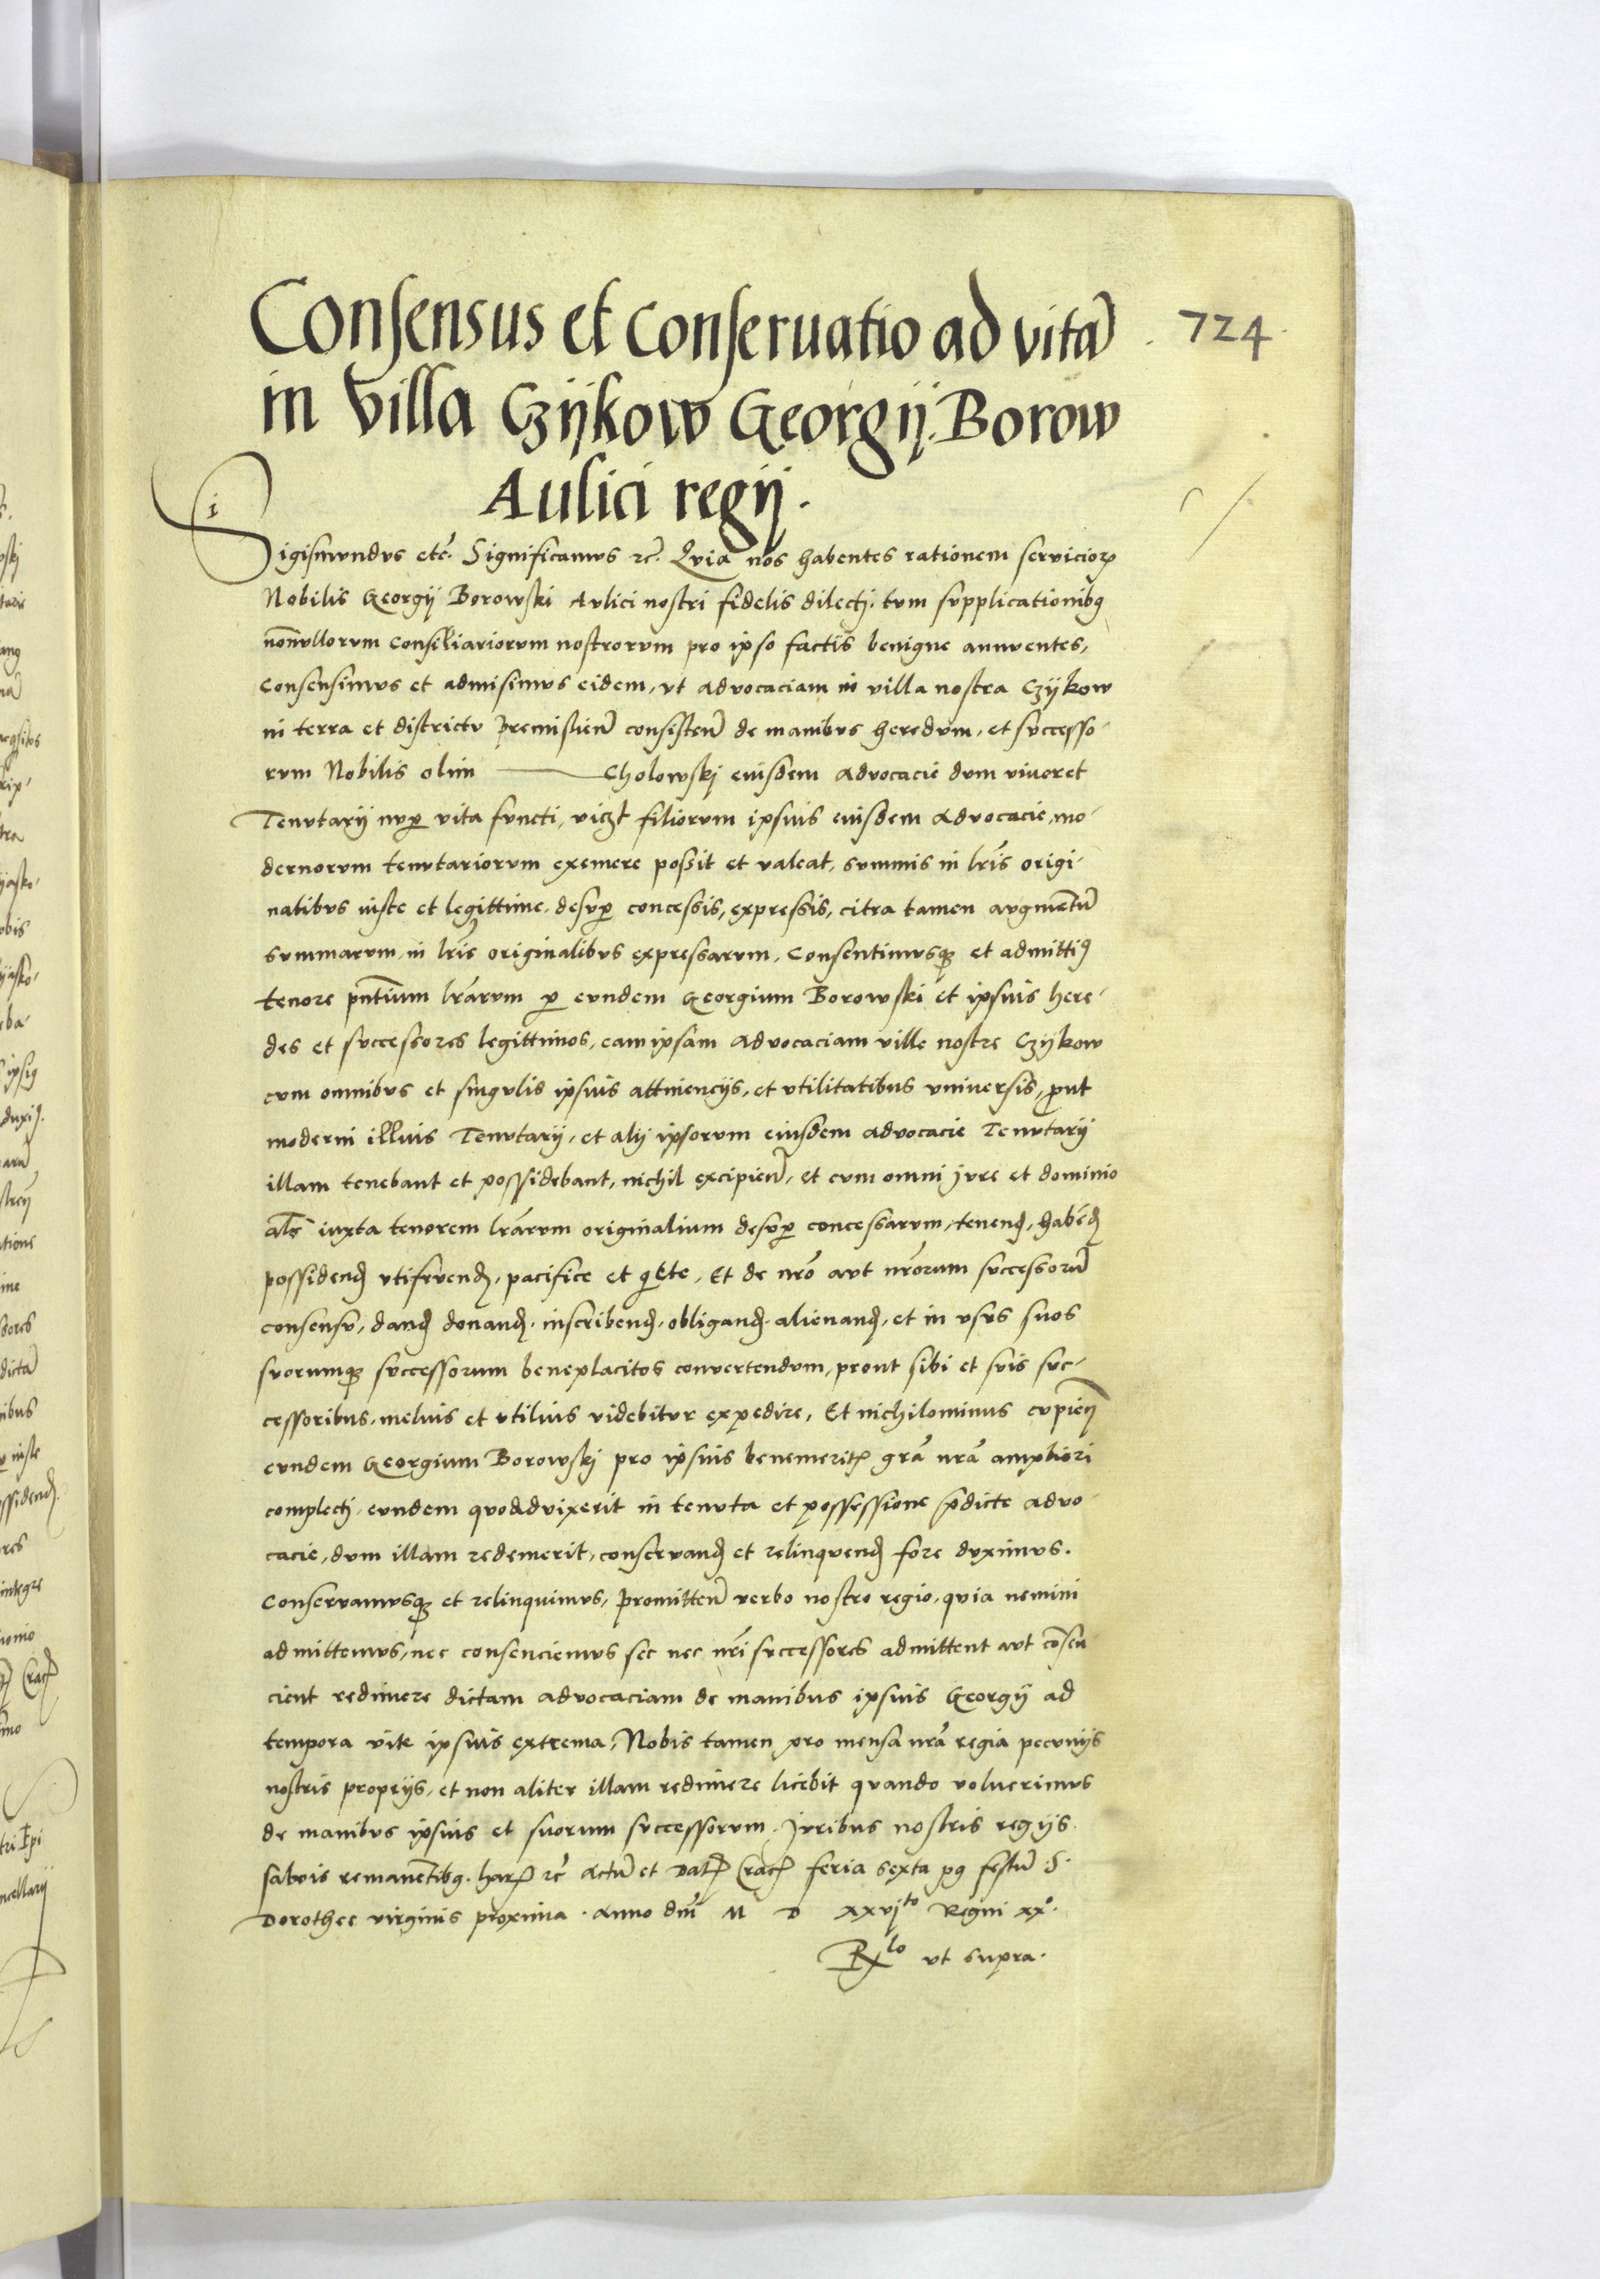 Consensus et Conseruatio ad vitã
724
in villa Czijkow Georgij Borow
Aulici regij.
Sigismundus etc̃. Significamus ꝛc̃. Quia nos habentes rationem serviciorꝝ
Nobilis Georgij Borowski Aulici nostri fidelis dilectj. tum supplicationibꝯ
nonñullorum Consiliariorum nostrorum pro ipso factis benigne annuentes,
Consensimus et admisimus eidem, ut advocaciam in villa nostra Czijkow
in terra et districtu Premislien̄ consisten̄ de manibus heredum, et successo-
rum Nobilis olim ——— Cholowskj eiusdem Advocacie dum viueret
Tenutarij nuꝑ vita functi, viczt filiorum ipsius eiusdem Advocacie, mo-
dernorum tenutariorum exemere possit et valeat, summis in lr̃is origi-
nalibus iuste et legittime desuꝑ concessis, expressis, citra tamen augmentũ
summarum, in lr̃is originalibus expressarum, Consentimusqꝫ et admittiꝯ
tenore pñtium lr̃arum ꝑ eundem Georgium Borowski et ipsius here-
des et successores legittimos, eam ipsam Advocaciam ville nostre Czijkow
cum omnibus et singulis ipsius attinencijs, et utilitatibus universis, ꝓut
moderni illius Tenutarij, et alij ipsorum eiusdem advocacie Tenutarij
illam tenebant et possidebant, nichil excipien̄, et cum omni jure et dominio
alr̃ iuxta tenorem lr̃arum originalium desuꝑ concessarum, tenenḍ, habenḍ
possidenḍ utifruenḍ, pacifice et quiete, Et de nr̃o aut nr̃orum successorũ
consensu, danḍ donanḍ, inscribenḍ, obliganḍ, alienanḍ, et in usus suos
suorumqꝫ successorum beneplacitos convertendum, prout sibi et suis suc-
cessoribus, melius et utilius videbitur expedire, Et nichilominus cupien̄
eundem Georgium Borowskj pro ipsius benemeritꝭ gr̃a nr̃a ampliori
complectj, eundem quoadvixerit in tenuta et possessione p̃dicte advo-
cacie, dum illam redemerit, conservanḍ et relinquenḍ fore duximus.
Conservamusqꝫ et relinquimus, Promitten̄ verbo nostro regio, quia nemini
admittemus, nec consenciemus sec nec nr̃i successores admittent aut cõsen
cient redimere dictam advocaciam de manibus ipsius Georgij ad
tempora vite ipsius extrema, Nobis tamen pro mensa nr̃a regia pecunijs
nostris proprijs, et non aliter illam redimere licebit quando voluerimus
de manibus ipsius et suorum successorum. Juribus nostris regijs
salvis remanentibꝯ. harꝝ ꝛc̃ Actũ et Datꝭ Cracꝭ feria sexta pꝯ festũ S.
Dorothee virginis proxima. Anno dñi M D xxvjto Regni xxo.
Rlo ut supra.